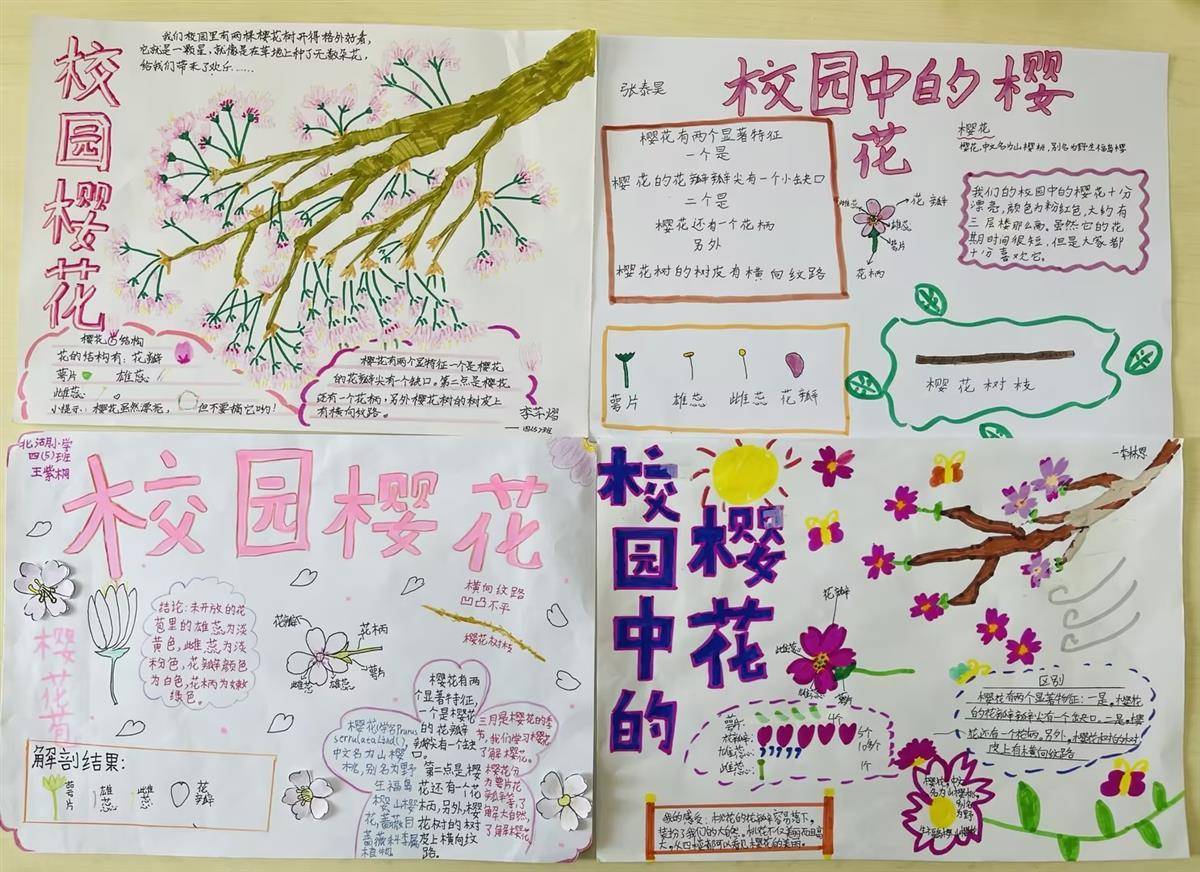 校园樱花
我们校园里有两棵樱花树开得格外好看，
它就是一颗星，就像是在草地上种了无数朵花，
给我们带来了欢乐……
樱花的结构
花的结构有：花瓣
萼片 雄蕊
雌蕊
小提示：樱花虽然漂亮， 但不要摘它哟！
樱花有两个显特征一个是樱花
的花瓣尖有个缺口。第二点是樱花
还有一个花柄，另外樱花树的树皮上
有横向纹路。
四(5)班
张泰昊
校园中的樱
花
樱花有两个显著特征
一个是
樱花的花瓣瓣尖有一个小缺口
二个是
樱花还有一个花柄
另外
樱花树的树皮有横向纹路
樱花
樱花，中文名为山樱桃，别名为野生福岛樱
我们的校园中的樱花十分
漂亮，颜色为粉红色，大约有
三层楼那么高。虽然它的花
期时间很短，但是大家都
十分喜欢它。
雄蕊
花瓣
雌蕊
萼片
花柄
萼片 雄蕊 雌蕊 花瓣
樱花树枝
北湖小学
四(5)班
王紫桐
校园樱花
樱花苞
结论：未开放的花
苞里的雄蕊为淡
黄色，雌蕊为淡
粉色，花瓣颜色
为白色，花柄为嫩
绿色。
花瓣
花柄
萼片
雌蕊 雄蕊
横向纹路
凹凸不平
樱花树枝
解剖结果：
萼片 雄蕊 雌蕊 花瓣
樱花有两
个显著特征，
一个是樱花
的花瓣
瓣尖有一个缺口。
第二点是樱
花还有一个花
柄，另外，樱
花树的树
皮上有横向纹
路。
樱花（学名Prunus
中文名为山樱
桃，别名为野
生福岛
樱 山樱
花，蔷薇目
蔷薇科李属
植物
三月是樱花的季
节，我们学习樱花
了解樱花。
樱花分
为萼片花
解大自然，
了解樱花。
校园中的
樱花
花瓣
雌蕊
雄蕊
萼片
萼片： 4个
花瓣： 5个
雄蕊：
雌蕊： 1个
区别
樱花有两个显著特征：一是，樱花
的花瓣瓣尖有一个缺口。二是，樱
花还有一个花柄。另外，樱花树的树
皮上有横向纹路
樱花，中文
名为山樱桃，
别名
为野
我的感受：
装扮了我们的大自然。